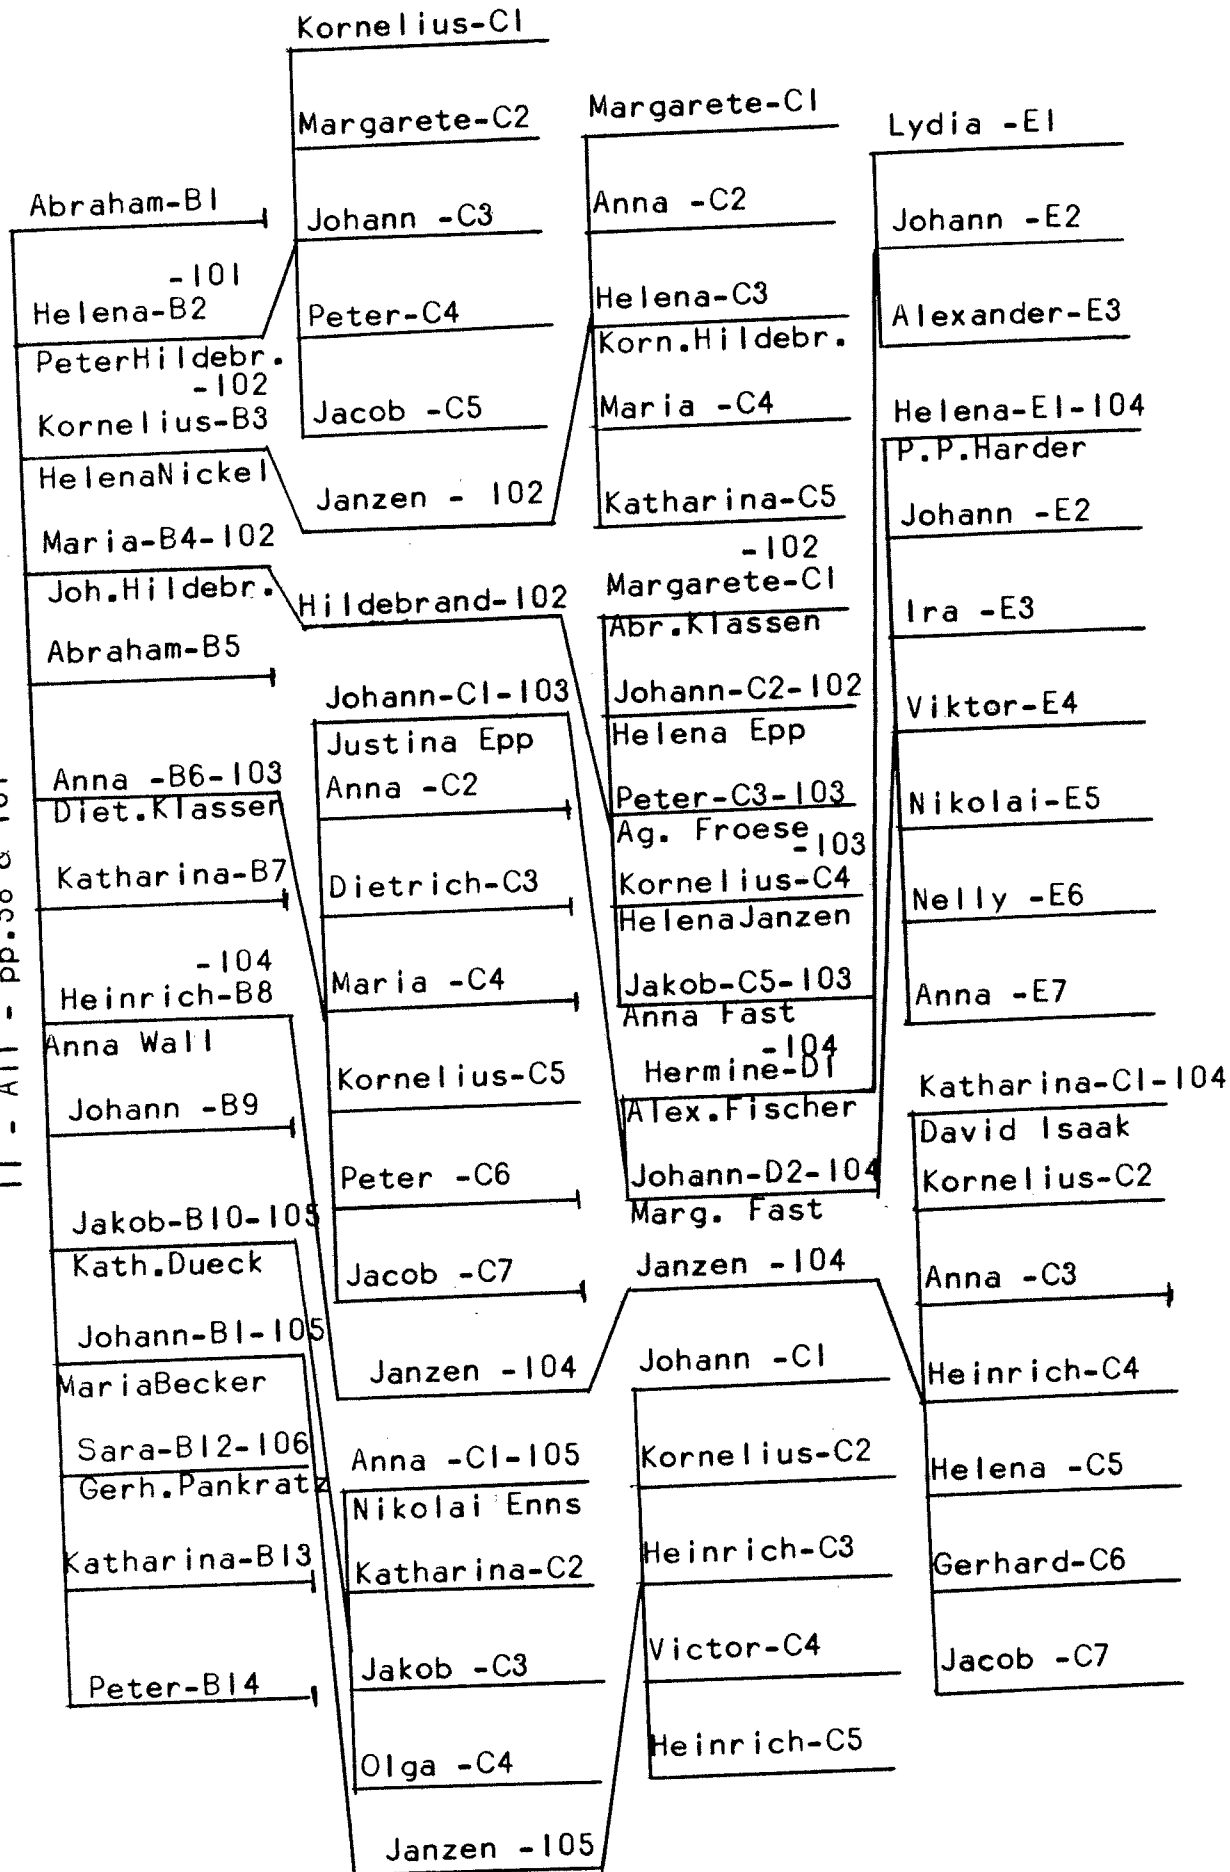 II - AII - pp.58 & 101
Abraham-B1
-101
Helena-B2
PeterHildebr.
-102
Kornelius-B3
HelenaNickel
Maria-B4-102
Joh.Hildebr.
Abraham-B5
Anna -B6-103
Diet.Klassen
Katharina-B7
-104
Heinrich-B8
Anna Wall
Johann -B9
Jakob-B10-105
Kath.Dueck
Johann-B1-105
MariaBecker
Sara-B12-106
Gerh.Pankratz
Katharina-B13
Peter-B14
Kornelius-C1
Margarete-C2
Johann -C3
Peter-C4
Jacob -C5
Janzen - 102
Hildebrand-102
Johann-C1-103
Justina Epp
Anna -C2
Dietrich-C3
Maria -C4
Kornelius-C5
Peter -C6
Jacob -C7
Janzen -104
Anna -C1-105
Nikolai Enns
Katharina-C2
Jakob -C3
Olga -C4
Janzen -105
Margarete-C1
Anna -C2
Helena-C3
Korn.Hildebr.
Maria -C4
Katharina-C5
-102
Margarete-C1
Abr.Klassen
Johann-C2-102
Helena Epp
Peter-C3-103
Ag. Froese
-103
Kornelius-C4
HelenaJanzen
Jakob-C5-103
Anna Fast
-104
Hermine-D1
Alex.Fischer
Johann-D2-104
Marg. Fast
Janzen -104
Johann -C1
Kornelius-C2
Heinrich-C3
Victor-C4
Heinrich-C5
Lydia -E1
Johann -E2
Alexander-E3
Helena-E1-104
P.P.Harder
Johann -E2
Ira -E3
Viktor-E4
Nikolai-E5
Nelly -E6
Anna -E7
Katharina-C1-104
David Isaak
Kornelius-C2
Anna -C3
Heinrich-C4
Helena -C5
Gerhard-C6
Jacob -C7